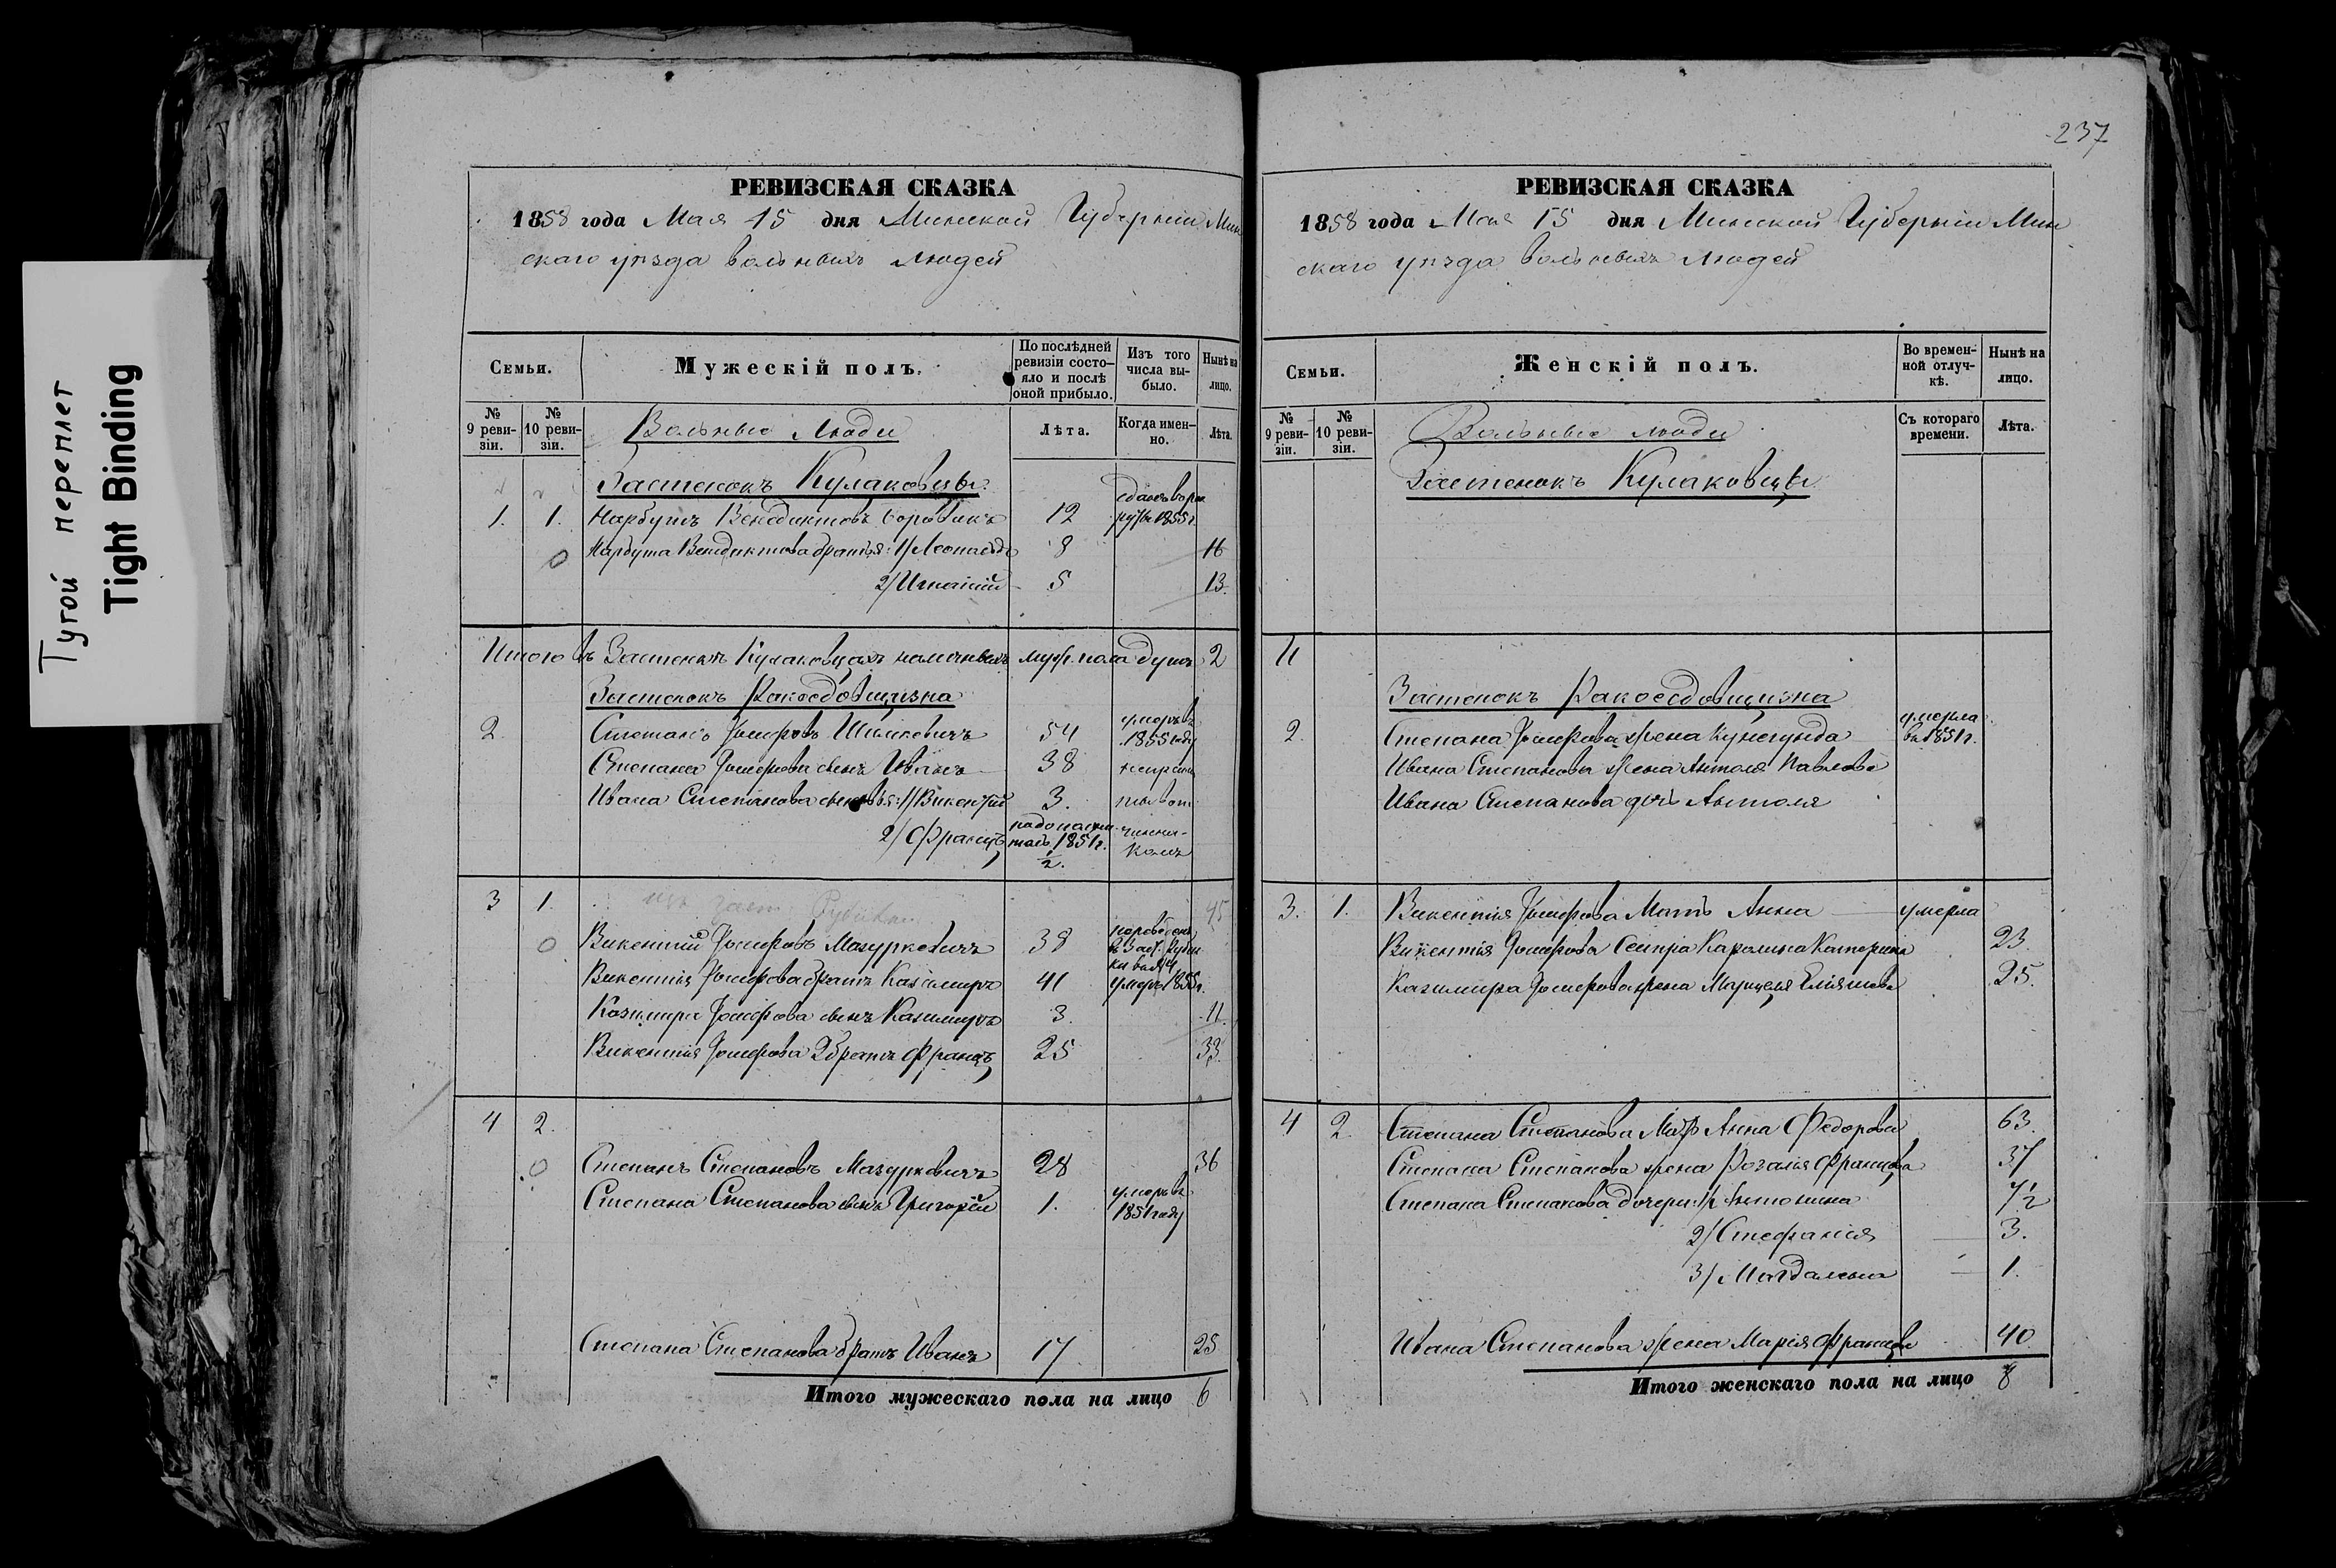 Тугой переплет
Tight Binding
РЕВИЗСКАЯ СКАЗКА
1858 года Мая 15 дня Минской Губерніи Мин
скаго уѣзда вольныхъ людей
Семьи.
Мужескій полъ.
По послѣдней ревизіи состояло и послѣ оной прибыло.
Изъ того числа выбыло.
Нынѣ на лицо.
№ 9 ревизіи.
№ 10 ревизіи.
Вольные люди
Лѣта.
Когда именно.
Лѣта.
Застенокъ Кулаковцы
1. 1. Нарбутъ Венедиктовъ 12 1855 г.
0 Нарбута Венедиктова братья: 1/ Леонардъ 8 16
2/ Игнатій 5 13.
Итого въ Застенкѣ Кулаковцахъ наличныхъ муж. пола душъ 2
Застенокъ Ракоедовщизна
2. Степанъ Іосифовъ 54 умеръ въ 1855 году
Степана Іосифова сынъ Иванъ 38
Ивана Степанова сыновья: 1/ Викентій 3.
2/ Францъ 1851 г. 1/2.
3 1. изъ заст. 45
0 Викентій Іосифовъ Мазуркевичъ 38
Викентія Іосифова братъ Казимиръ 41 умеръ 1855 г.
Казимира Іосифова сынъ Казимиръ 3. 11.
Викентія Іосифова 2 братъ Францъ 25 33.
4 2.
0 Степанъ Степановъ Мазуркевичъ 28 36
Степана Степанова сынъ Григорій 1. умеръ въ 1851 году
Степана Степанова братъ Иванъ 17 25
Итого мужескаго пола на лицо 6
237
РЕВИЗСКАЯ СКАЗКА
1858 года Мая 15 дня Минской Губерніи Мин
скаго уѣзда вольныхъ людей
Семьи.
Женскій полъ.
Во временной отлучкѣ.
Нынѣ на лицо.
№ 9 ревизіи.
№ 10 ревизіи.
Вольные люди
Съ котораго времени.
Лѣта.
Застенокъ Кулаковцы
Застенокъ Ракоедовщизна
2. Степана Іосифова жена Кунегунда умерла въ 1851 г.
Ивана Степанова жена Антоля Павлова
Ивана Степанова дочь Антоля
3. 1. Викентія Іосифова Мать Анна умерла
Викентія Іосифова Сестра Каролина Катерина 23.
Казимира Іосифова жена Марцеля 25.
4 2. Степана Степанова Мать Анна Федорова 63.
Степана Степанова жена Розалія Францова 37
Степана Степанова дочери: 1/ Антонина 7 1/2
2/ Стефанія 3.
3/ Магдалена 1.
Ивана Степанова жена Марія Францова 40.
Итого женскаго пола на лицо 8